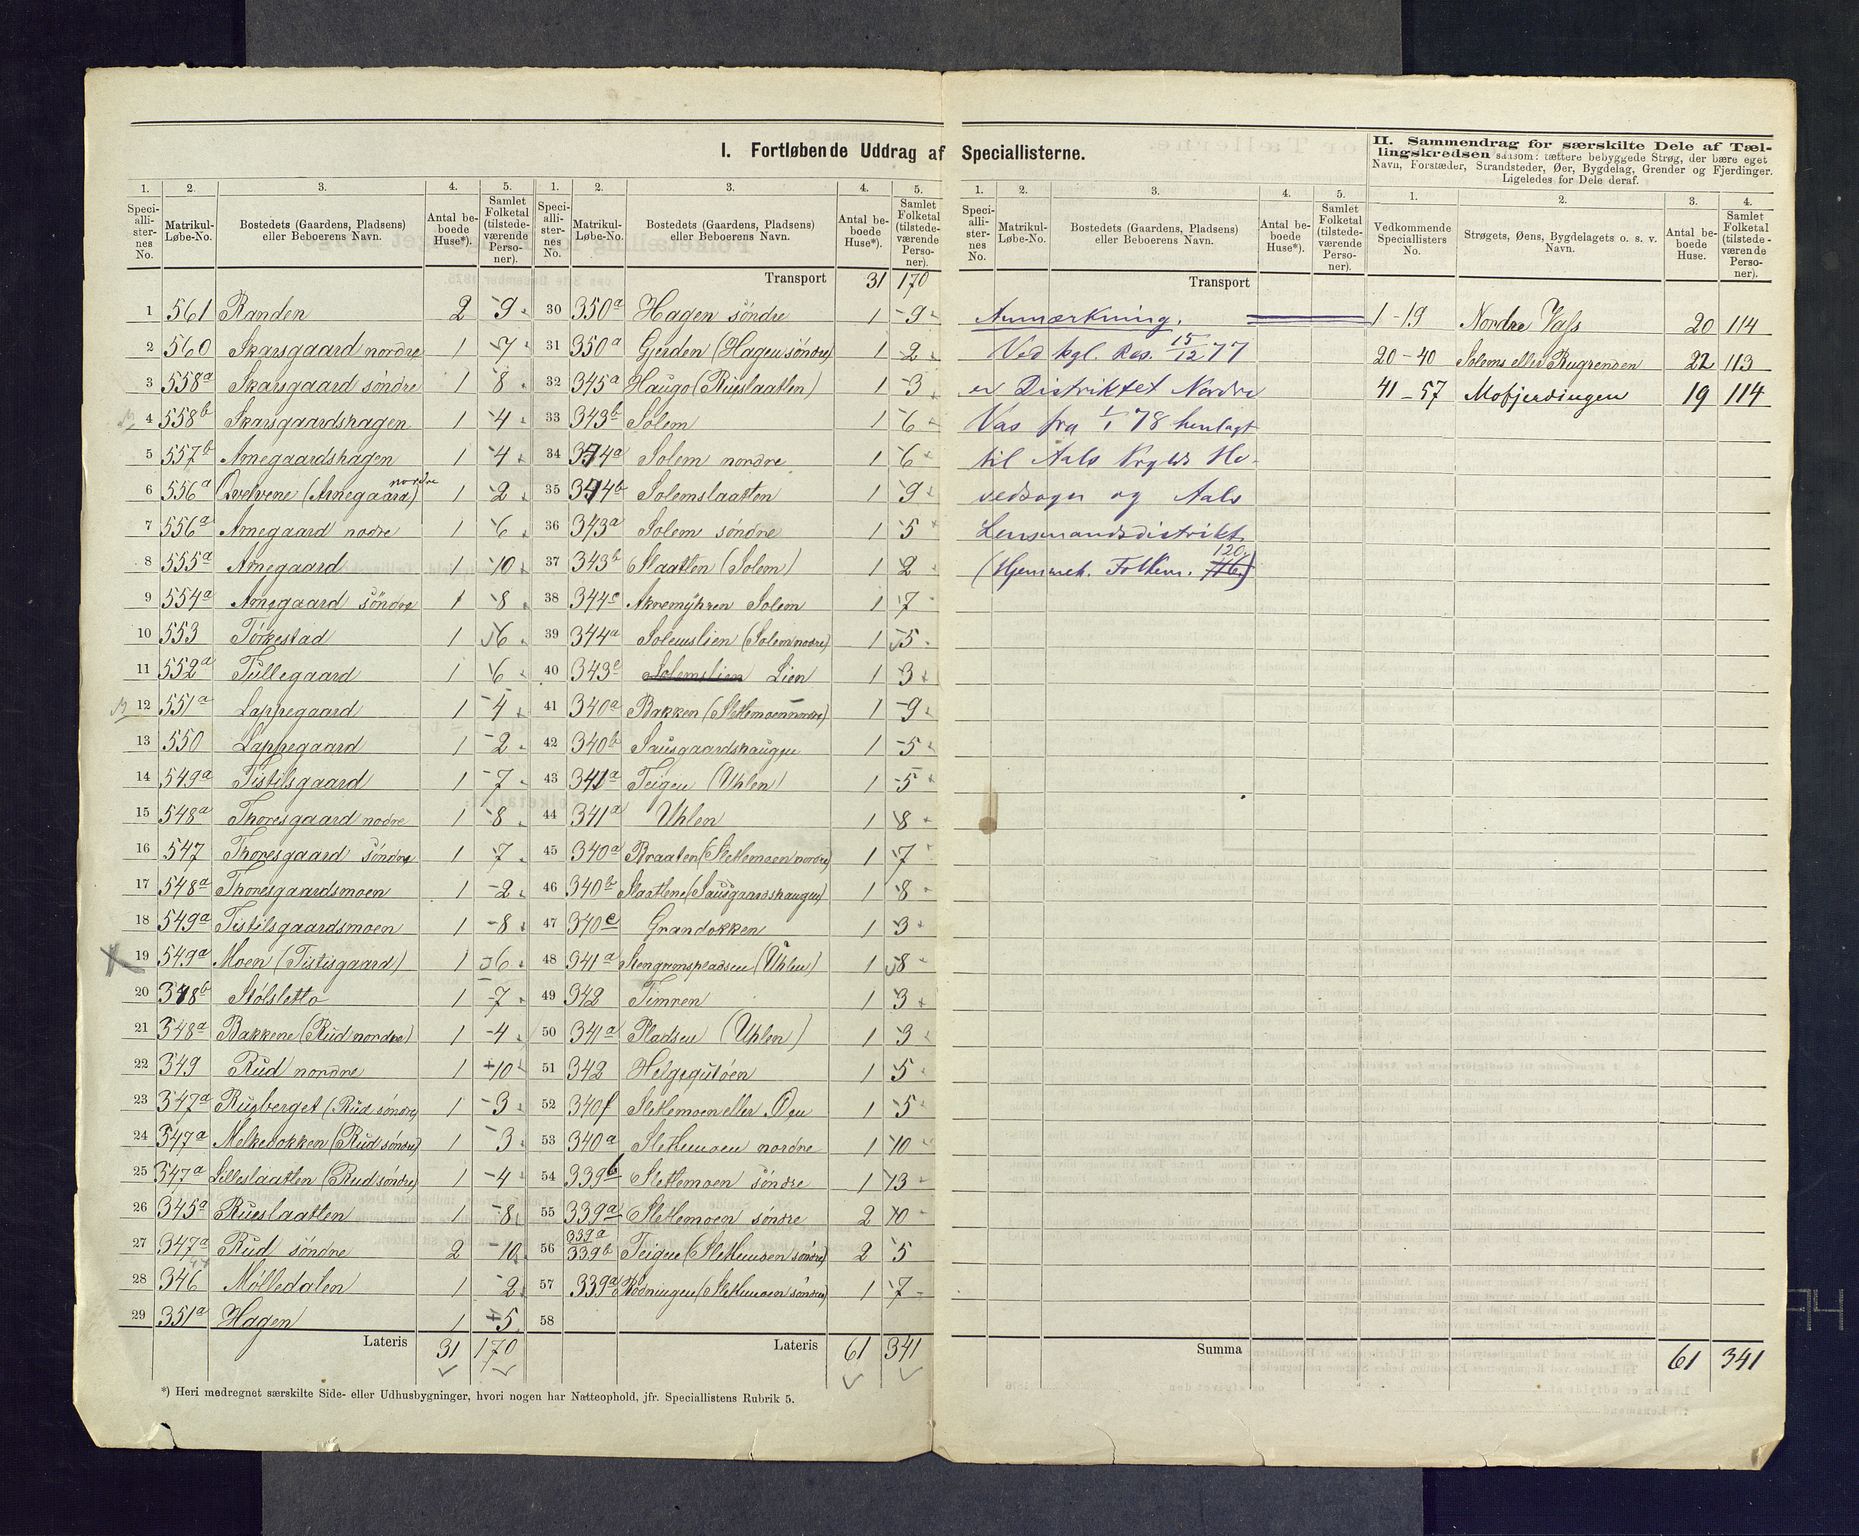 I. Fortløbende Uddrag af Speciallisterne.
II. Sammendrag for særskilte Dele af Tællingskredsen saasom: tættere bebyggede Strøg, der bære eget
Navn, Forstæder, Strandsteder, Øer, Bygdelag, Grender og Fjerdinger.
Ligeledes for Dele deraf.
1. 2. 3. 4. 5.
Speciallisternes No. Matrikul-Løbe-No. Bostedets (Gaardens, Pladsens) eller Beboerens Navn. Antal beboede Huse*). Samlet Folketal (tilstedeværende Personer).
1 561 Randen 2 9
2 560 Skarsgaard nordre 1 7
3 558a Skarsgaard søndre 1 8
4 558b Skarsgaardshagen 1 4
5 557b Arnegaardshagen 1 4
6 556a Qvelvene (Arnegaard nordre) 1 2
7 556a Arnegaard nodre 1 6
8 555a Arnegaard 1 10
9 554a Arnegaard søndre 1 8
10 553 Torkestad 1 6
11 552a Tullegaard 1 6
12 551a Lappegaard 1 4
13 550 Lappegaard 1 2
14 549a Tistilsgaard 1 7
15 548a Thoresgaard nodre 1 8
16 547 Thoresgaard søndre 1 7
17 548a Thoresgaardsmoen 1 2
18 549a Tistilsgaardsmoen 1 8
19 549a Moen (Tistisgaard) 1 6
20 348b Stølsletto 1 7
21 348a Bakkene (Rud nordre) 1 4
22 349 Rud nordre 1 10
23 347a Rusberget (Rud søndre) 1 3
24 347a Melkedokken (Rud søndre) 1 3
25 347a Lilleslaatten (Rud søndre) 1 4
26 345a Rueslaatten 1 8
27 347a Rud søndre 2 10
28 346 Mølledalen 1 2
29 351a Hagen 1 5
Lateris 31 170
1. 2. 3. 4. 5.
Speciallisternes No. Matrikul-Løbe-No. Bostedets (Gaardens, Pladsens) eller Beboerens Navn. Antal beboede Huse*). Samlet Folketal (tilstedeværende Personer).
Transport 31 170
30 350a Hagen søndre 1 9
31 350a Gjerden (Hagen søndre) 1 2
32 345a Haugo (Rueslaatten) 1 3
33 343b Solem 1 6
34 344a Solem nordre 1 6
35 344b Solemslaatten 1 9
36 343a Solem søndre 1 5
37 343b Slaatten (Solem) 1 2
38 344c Akremyhren Solem 1 7
39 344a Solemslien (Solem nodre) 1 5
40 343c Solemslien Lien 1 3
41 340a Bakken (Sletemoen nordre) 1 9
42 340b Sausgaardshaugen 1 5
43 341a Teigen (Uhlen) 1 5
44 341a Uhlen 1 8
45 340a Braaten (Sletemoen nordre) 1 7
46 340b Slaattene (Sausgaardshaugen) 1 8
47 340e Grandokken 1 3
48 341a (Uhlen) 1 8
49 342 Timren 1 3
50 341a Pladsen (Uhlen) 1 3
51 342 Helgegutøen 1 5
52 340f Sletemoen eller Øen 1 5
53 340a Sletemoen nordre 1 10
54 339b Sletemoen søndre 1 13
55 339a Sletemoen søndre 2 10
56 339a 339b Teigen (Sletemoen søndre) 2 5
57 339a (Sletemoen søndre) 1 7
58
Lateris 61 341
*) Heri medregnet særskilte Side- eller Udhusbygninger, hvori nogen har Natteophold, jfr. Speciallistens Rubrik 5.
1. 2. 3. 4. 5.
Speciallisternes No. Matrikul-Løbe-No. Bostedets (Gaardens, Pladsens) eller Beboerens Navn. Antal beboede Huse*). Samlet Folketal (tilstedeværende Personer).
Transport
Anmærkning.
Ved kgl. Res. 15/12 77
er Distriktet Nordre
Vas fra 1/1 78 henlagt
til Aals Prgjlds Ho-
vedsogn og Aals
Lensmandsdistrikt.
(Hjemmeh. Folkem. 120)
Summa
1. 2. 3. 4.
Vedkommende Speciallisters No. Strøgets, Øens, Bygdelagets o. s. v. Navn. Antal beboede Huse. Samlet Folketal (tilstedeværende Personer).
1-19 Nordre Vass 20 114
20-40 Solems eller Rugrenden 22 113
41-57 Mofjerdingen 19 114
61 341